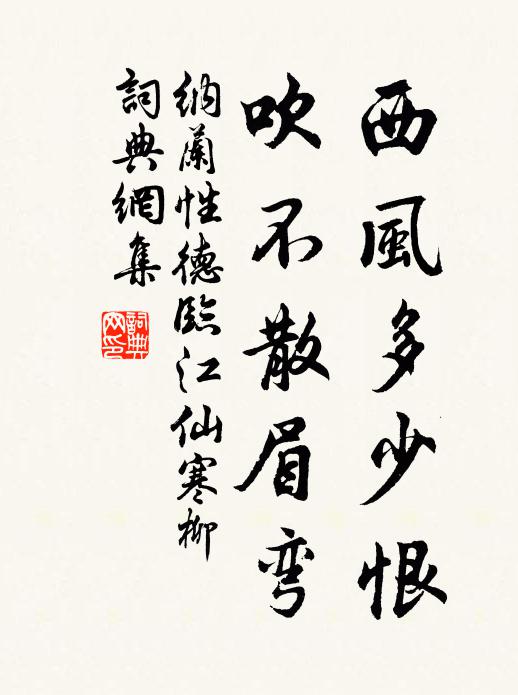 西風多少恨
吹不散眉弯
納蘭性德臨江仙寒柳
詞典網集
詞典
网印